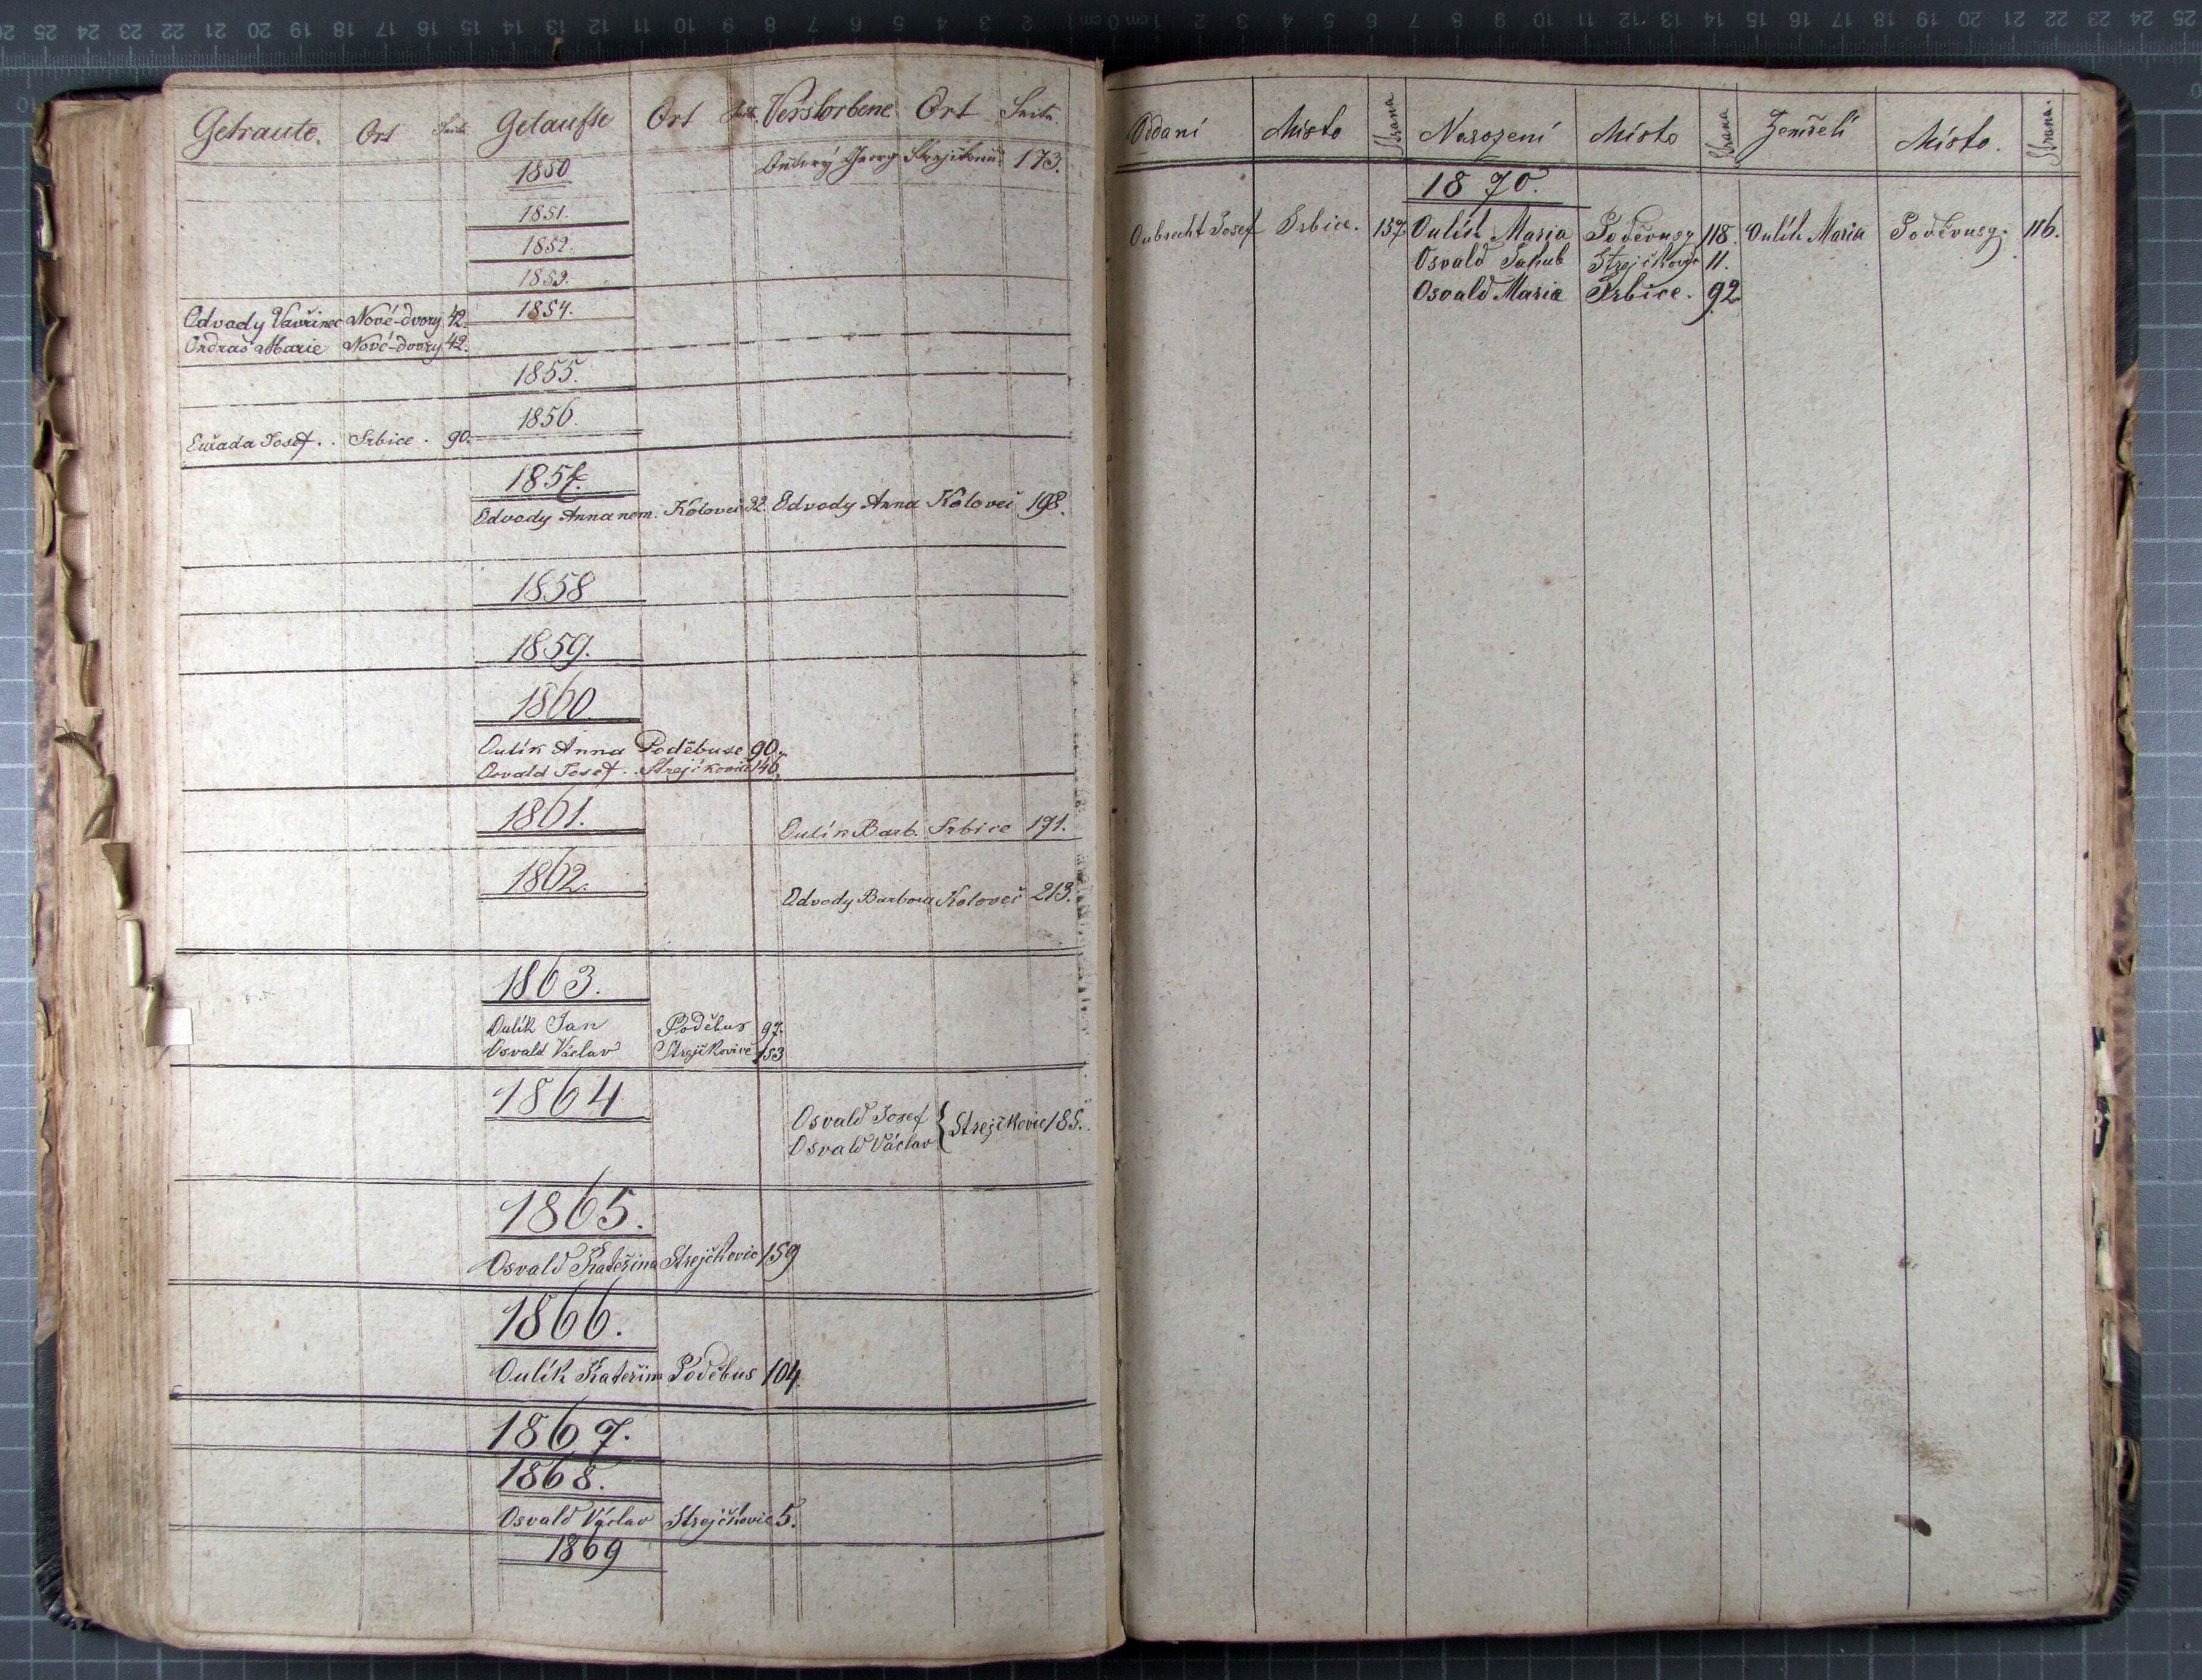 Getraute. Ort Seite Getaufte Ort Seite. Verstorbene Ort Seite.
Georg 173.
1850
1851.
1852.
1853.
1854.
Odvody Vavřinec Nové-dvory 42.
Ondraš Marie Nové-dvory 42.
1855.
1856.
Josef . . Srbice . 90.
1857.
Odvody Anna nem. Koloveč 32. Odvody Anna Koloveč 198.
1858
1859.
1860.
Oulík Anna Poděbuse 90.
Osvald Josef . Strejčkovic 146.
1861.
Oulík Barb. Srbice 191.
1862.
Odvody Barbora Koloveč 213.
1863.
Oulík Jan Poděbus 97.
Osvald Václav Strejčkovice 153
1864
Osvald Josef
Osvald Václav } Strejčkovic 185.
1865.
Osvald Kateřina Strejčkovic 159
1866.
Oulík Kateřina Poděbus 104.
1867.
1868.
Osvald Václav Strejčkovic 5.
1869
Oddaní Místo Strana Narození Místo Strana Zemřelí Místo. Strana.
1870.
Oubrecht Josef Srbice. 157. Oulík Maria Poděvusy 118. Oulík Maria Poděvusy. 116.
Osvald Jakub Strejčkovic 11.
Osvald Maria Srbice. 92